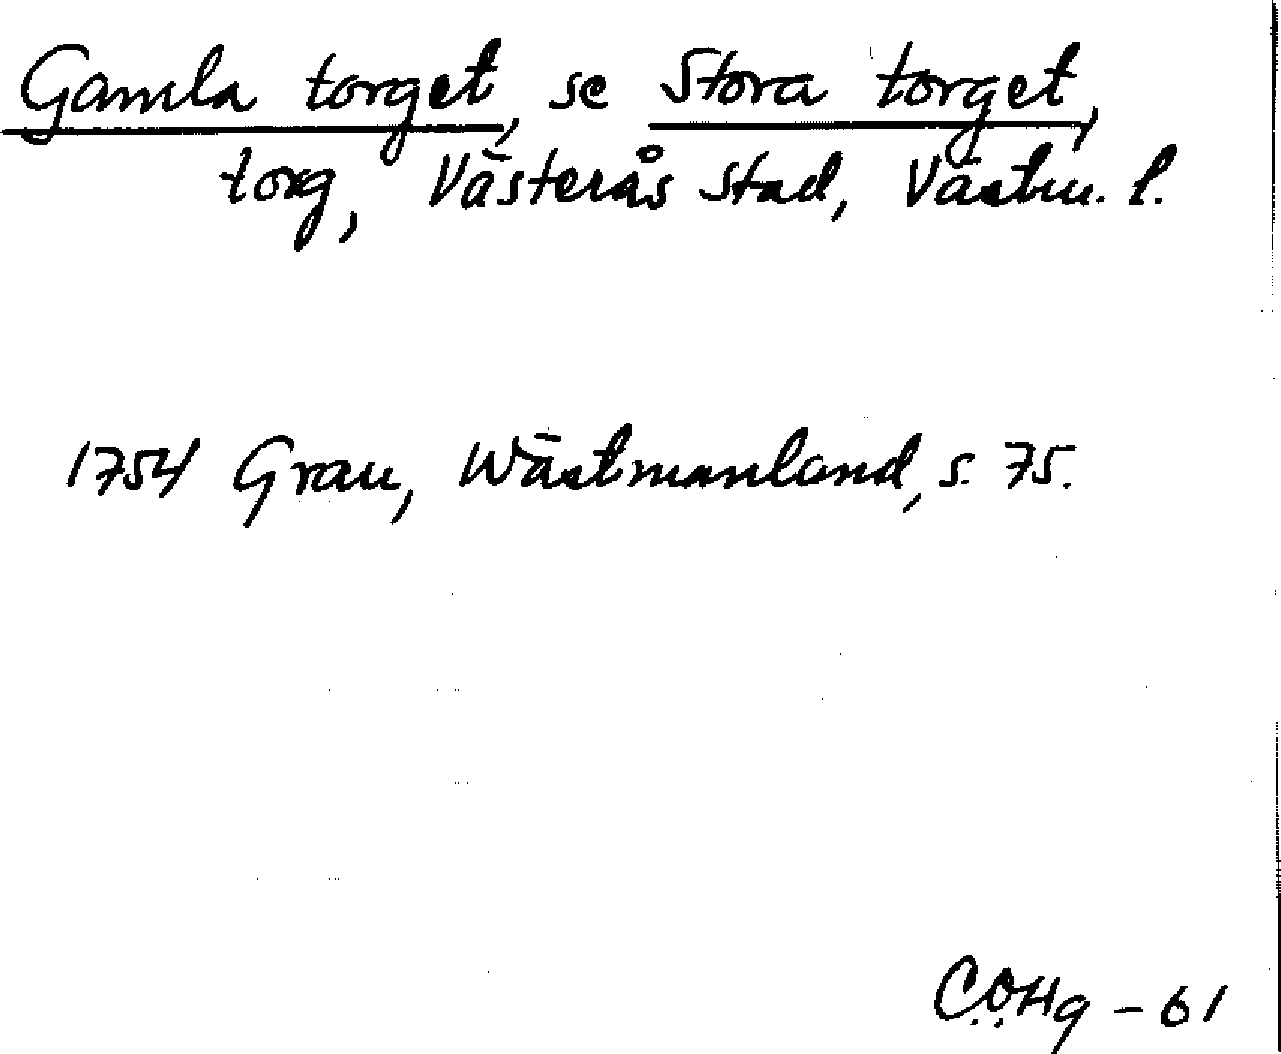 Gamla torget, se Stora torget,
torg, Västerås stad, Västm. l.
1754 Grau, Wästmanland, s. 75.
C.O.Hg - 61